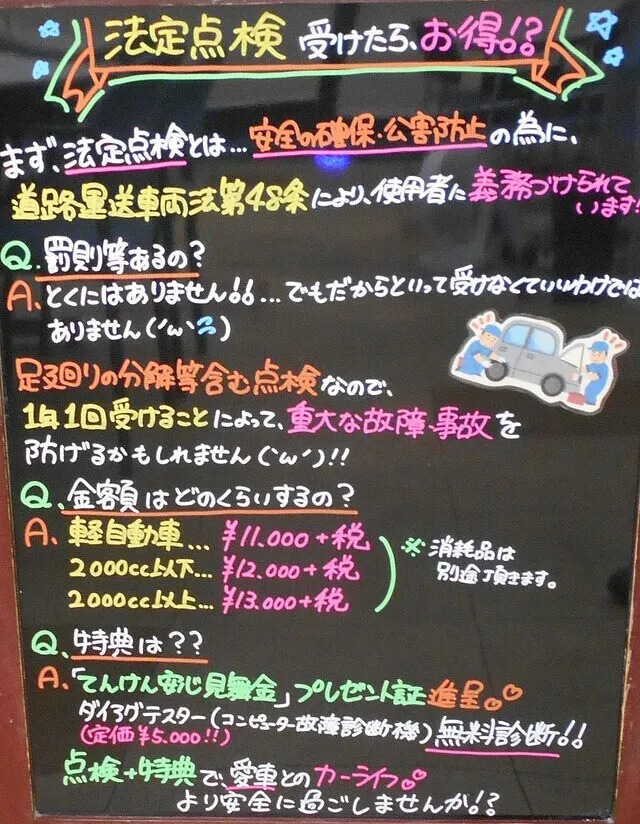 法定点検 受けたら、お得!?
まず、法定点検とは…安全の確保・公害防止の為に、
道路運送車両法第48条により、使用者に義務づけられて
います!
Q. 罰則等あるの?
A. とくにはありません!!…でもだからといって受けなくていいわけでは
ありません(´ω`ミ)
足廻りの分解等含む点検なので、
1年1回受けることによって、重大な故障・事故を
防げるかもしれません(`ω´)!!
Q. 金額はどのくらいするの?
A. 軽自動車… ¥11.000+税
2000cc以下… ¥12.000+税
2000cc以上… ¥13.000+税
※消耗品は
別途頂きます。
Q. 特典は??
A. 「てんけん安心見舞金」プレゼント証進呈。♡♡
ダイアグテスター(コンピューター故障診断機)無料診断!!
(定価¥5.000!!)
点検+特典で、愛車とのカーライフ♡♡
より安全に過ごしませんか!?